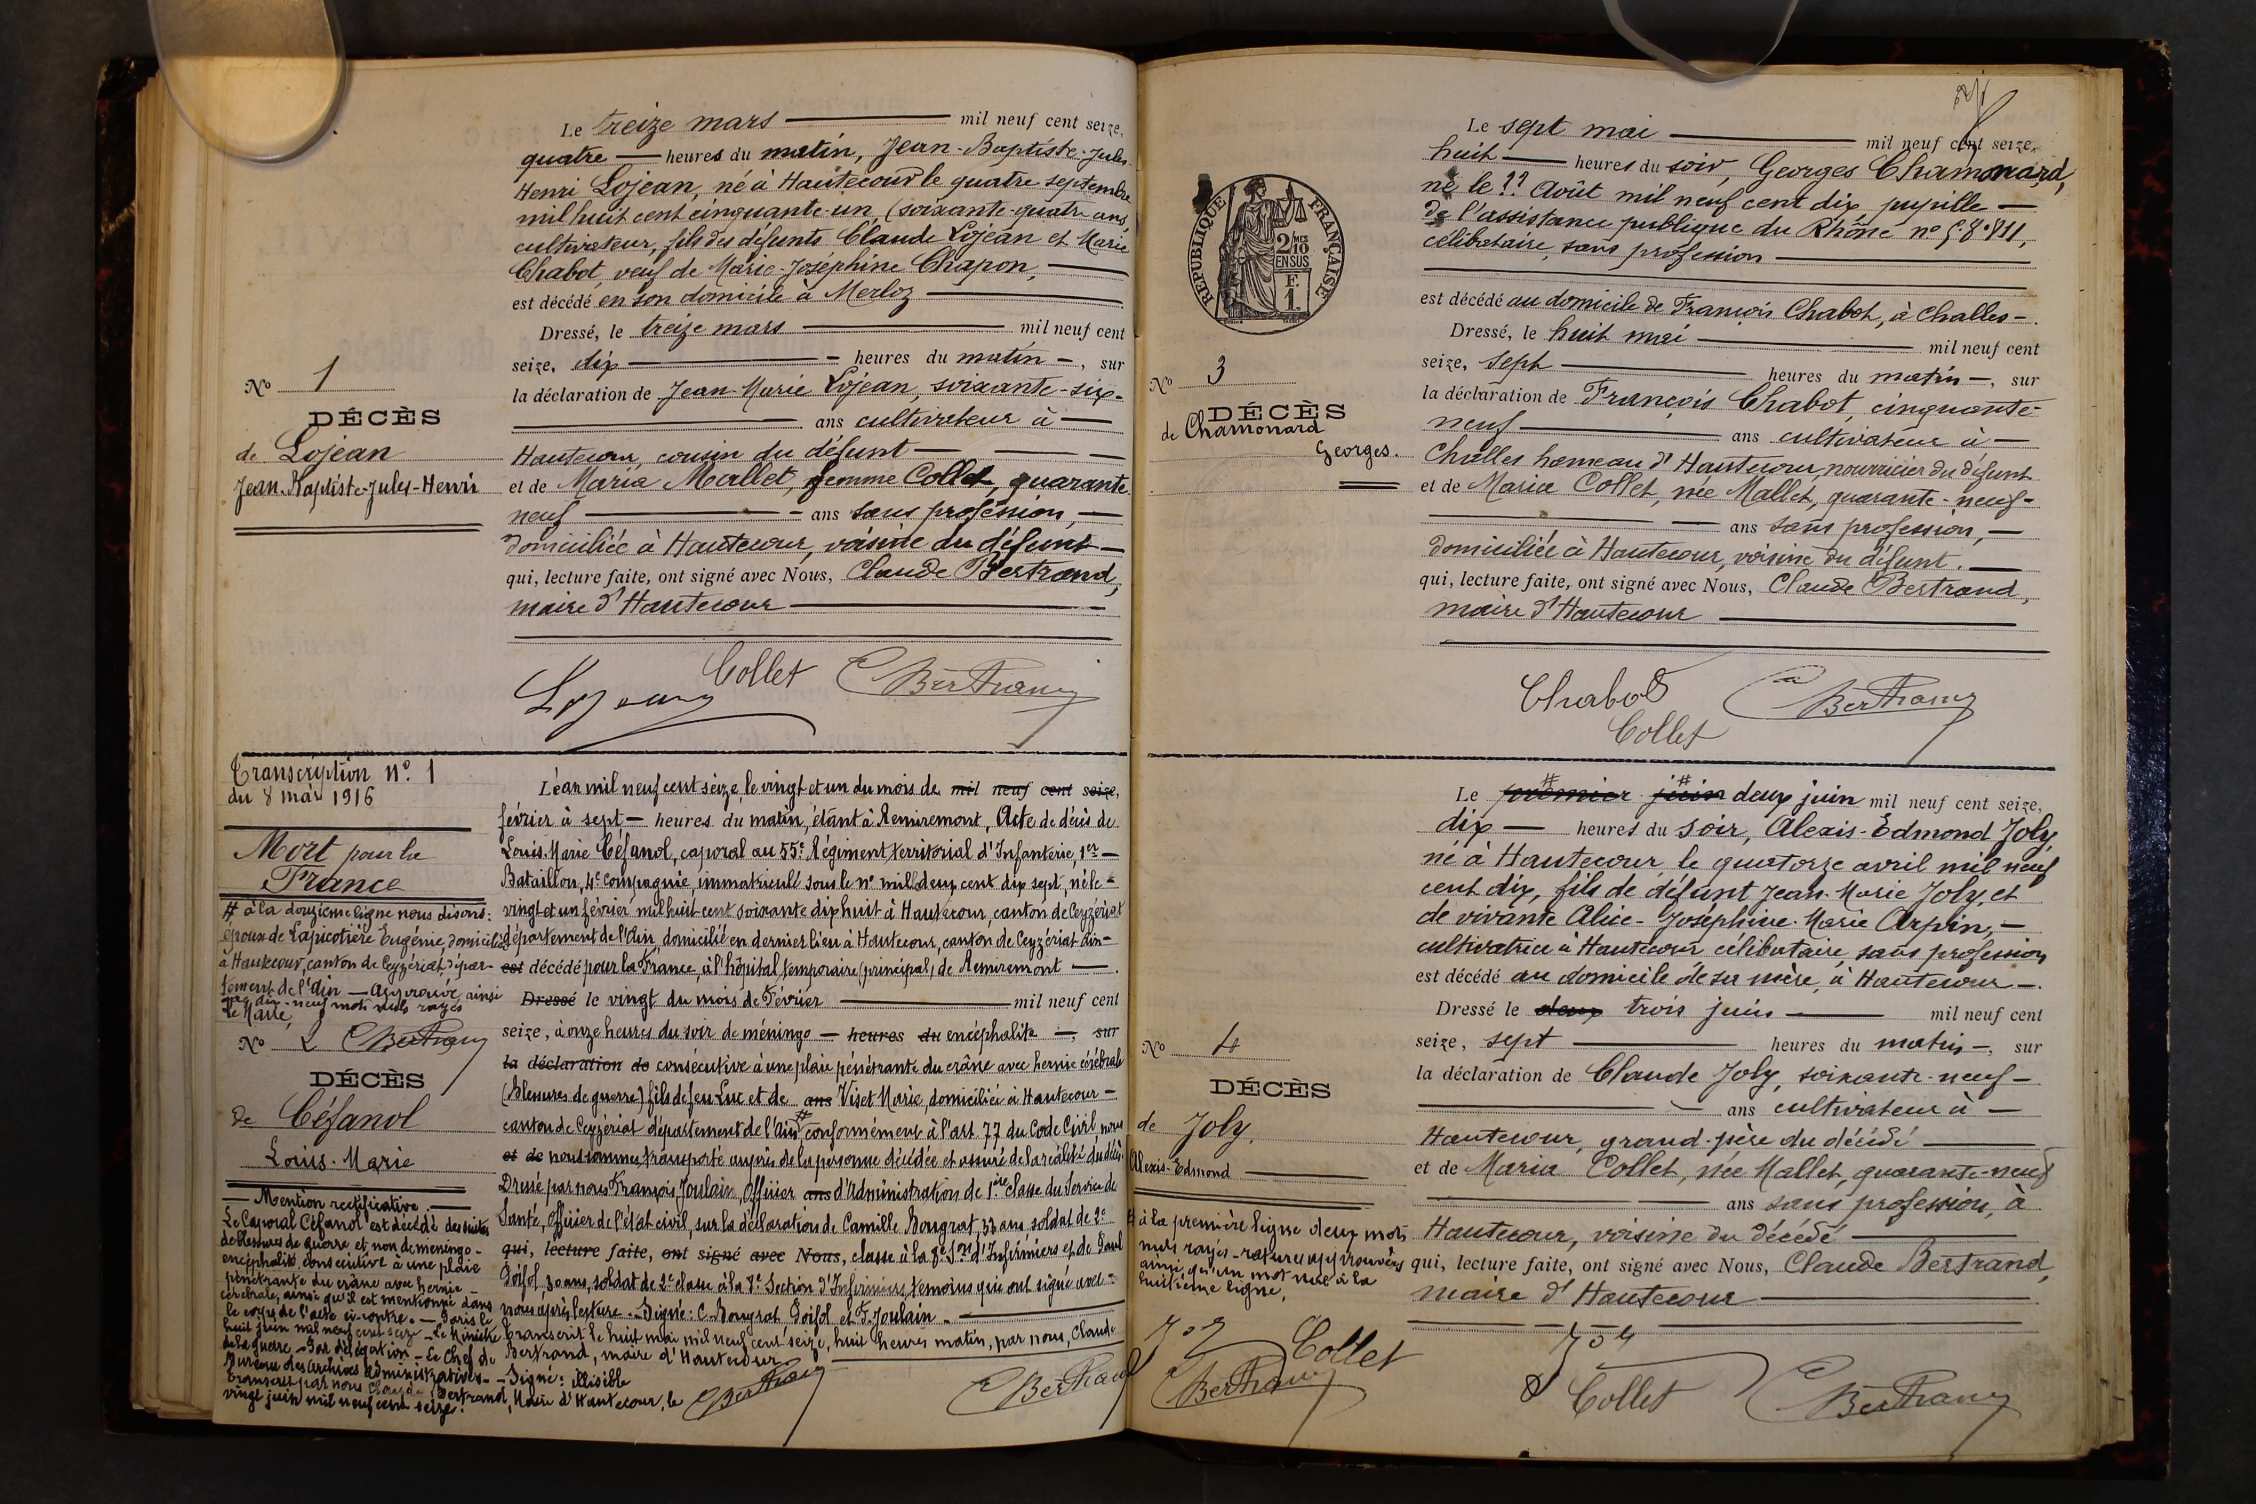 Le treize mars mil neuf cent seize,
quatre heures du matin, Jean-Baptiste-Jules-
Henri Lojean, né à Hautecour le quatre septembre
mil huit cent cinquante-un, (soixante-quatre ans,
cultivateur, fils des défunts Claude Lojean et Marie
Chabot, veuf de Marie-Joséphine Chapon,
est décédé en son domicile à Merloz
Dressé, le treize mars mil neuf cent
seize, dix heures du matin, sur
la déclaration de Jean-Marie Lojean, soixante-six-
ans cultivateur à
Hautecour, cousin du défunt
et de Maria Mallet, femme Collet, quarante
neuf ans sans profession,
domiciliée à Hautecour, voisine du défunt
qui, lecture faite, ont signé avec Nous, Claude Bertrand,
maire d'Hautecour
Nº 1
DÉCÈS
de Lojean
Jean-Baptiste-Jules-Henri
Lojean Collet Bertrand
Transcription nº 1
du 8 mai 1916
Mort pour la
France
# à la douzième ligne nous disons:
époux de Lapicotière Eugénie, domiciliée
à Hautecour, canton de Ceyzériat, dépar-
tement de l'Ain — Approuvé ainsi
que dix-neuf mots nuls rayés
Le Maire,
Nº 2 C Bertrand
DÉCÈS
de Céfanol
Louis-Marie
Mention rectificative.
Le Caporal Céfanol est décédé des suites
de blessures de guerre et non de méningo-
encéphalite consécutive à une plaie
pénétrante du crâne avec hernie
cérébrale, ainsi qu'il est mentionné dans
le corps de l'acte ci-contre. — Paris le
huit juin mil neuf cent seize — Le Ministre
de la Guerre — Par délégation — Le Chef du
Bureau des Archives Administratives — Signé: Illisible
Transcrit par nous Claude Bertrand, Maire d'Hautecour, le
vingt juin mil neuf cent seize.
L'an mil neuf cent seize, le vingt et un du mois de mil neuf cent seize,
février à sept heures du matin, étant à Remiremont, Acte de décès de
Louis-Marie Céfanol, caporal au 55e Régiment territorial d'Infanterie, 1er
Bataillon, 4e Compagnie, immatriculé sous le nº mil deux cent dix sept, né le
vingt et un février mil huit cent soixante dix huit à Hautecour, canton de Ceyzériat
département de l'Ain, domicilié en dernier lieu à Hautecour, canton de Ceyzériat-Ain-
est décédé pour la France, à l'hôpital temporaire (principal) de Remiremont
Dressé le vingt du mois de Février mil neuf cent
seize, à onze heures du soir de méningo — heures du encéphalite, sur
la déclaration de consécutive à une plaie pénétrante du crâne avec hernie cérébrale
(Blessures de guerre) fils de feu Luc et de ans Viset Marie, domiciliée à Hautecour
canton de Ceyzériat département de l'Ain # conformément à l'art. 77 du Code Civil nous
et de nous sommes transporté auprès de la personne décédée et assuré de la réalité du décès.
Dressé par nous François Joulain, Officier ans d'Administration de 1ère classe du Service de
Santé, Officier de l'état civil, sur la déclaration de Camille Bongrat, 33 ans, soldat de 2e
qui, lecture faite, ont signé avec Nous, classe à la 8e Son d'Infirmiers et de Paul
Goifol, 30 ans, soldat de 2e classe à la 8e Section d'Infirmiers, témoins qui ont signé avec
nous après lecture. — Signé: C. Bongrat, Goifol et F. Joulain.
Transcrit le huit mai mil neuf cent seize, huit heures matin, par nous, Claude
Bertrand, maire d'Hautecour
C Bertrand C Bertrand
REPUBLIQUE FRANÇAISE
2/10 MES
EN SUS
F.
1.
Le sept mai mil neuf cent seize,
huit heures du soir, Georges Chamonard,
né le ?? Août mil neuf cent dix pupille
de l'assistance publique du Rhône nº
célibataire, sans profession
est décédé au domicile de François Chabot, à Challes
Dressé, le huit mai mil neuf cent
seize, sept heures du matin, sur
la déclaration de François Chabot, cinquante-
neuf ans cultivateur à
Challes hameau d'Hautecour, nourricier du défunt
et de Maria Collet, née Mallet, quarante-neuf-
ans sans profession,
domiciliée à Hautecour, voisine du défunt.
qui, lecture faite, ont signé avec Nous, Claude Bertrand,
maire d'Hautecour
Nº 3
DÉCÈS
de Chamonard
Georges.
Chabot Bertrand
Collet
Le premier juin deux juin mil neuf cent seize,
dix heures du soir, Alexis-Edmond Joly,
né à Hautecour le quatorze avril mil neuf
cent dix, fils de défunt Jean-Marie Joly, et
de vivante Alice-Joséphine-Marie Arpin,
cultivatrice à Hautecour célibataire, sans profession
est décédé au domicile de sa mère, à Hautecour
Dressé le deux trois juin mil neuf cent
seize, sept heures du matin, sur
la déclaration de Claude Joly, soixante-neuf-
ans cultivateur à
Hautecour, grand-père du décédé
et de Maria Collet, née Mallet, quarante-neuf
ans sans profession, à
Hautecour, voisine du décédé
qui, lecture faite, ont signé avec Nous, Claude Bertrand,
maire d'Hautecour
Nº 4
DÉCÈS
de Joly,
Alexis-Edmond
# à la première ligne deux mots
nuls rayés - ratures approuvées
ainsi qu'un mot nul à la
huitième ligne.
Collet
C Bertrand
Collet C Bertrand